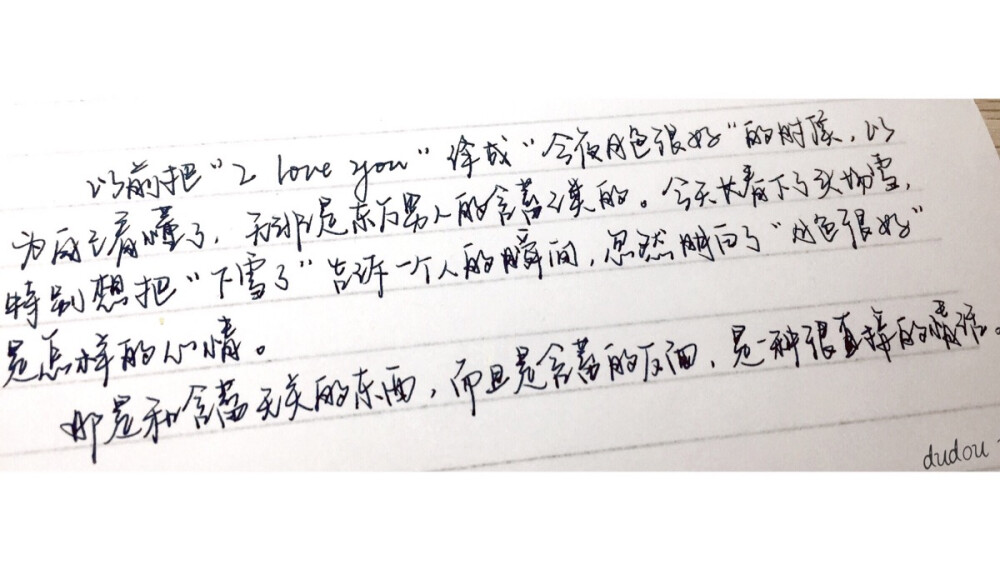 以前把“I love you”译成“今夜月色很好”的时候，以
为自己看懂了，无非是东方男人的含蓄之类的。今天长春下了头场雪，
特别想把“下雪了”告诉一个人的瞬间，忽然明白了“月色很好”
是怎样的心情。
那是和含蓄无关的东西，而且是含蓄的反面，是一种很直接的情话。
dudou